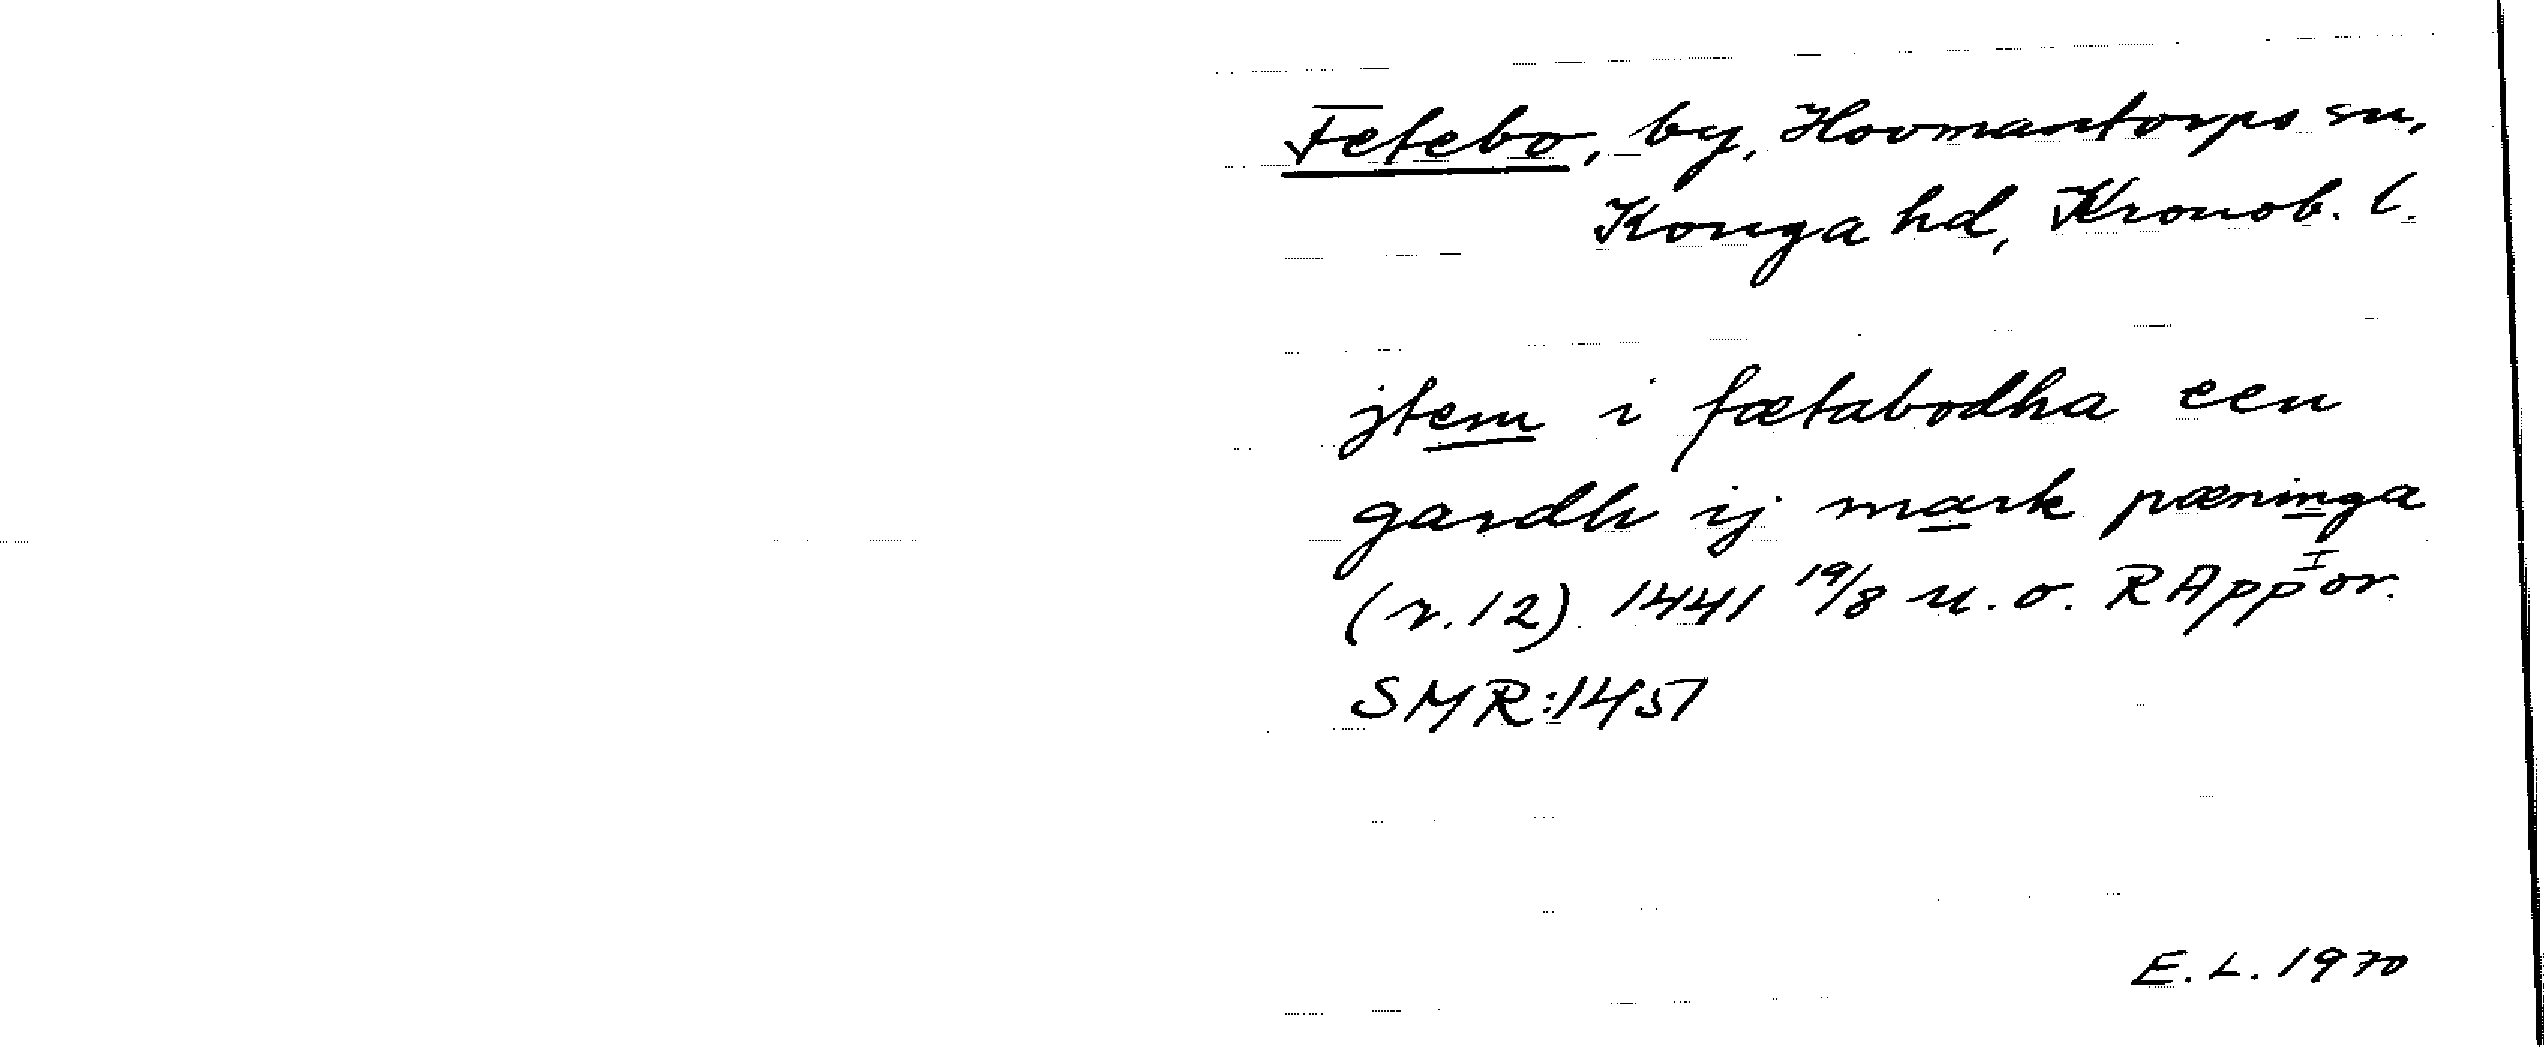 Fetebo, by, Hovmantorps sn,
Konga hd, Kronob. l.
jtem i fætabodha een
gardh ij mark pæninga
(r. 12) 1441 19/8 u. o. RApp I or.
SMR: 1451
E. L. 1970